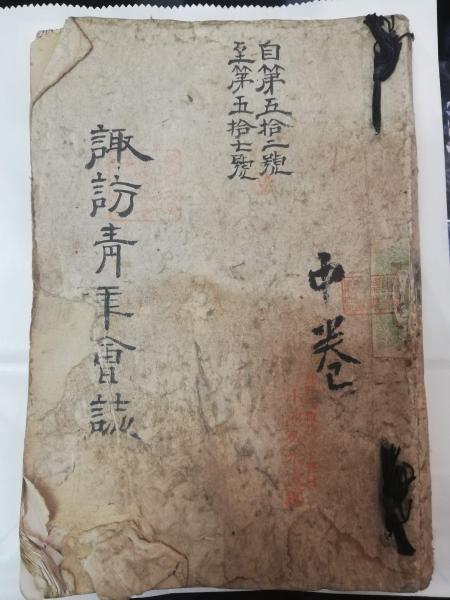 自第五拾二號
至第五拾七號
中巻
諏訪青年會誌